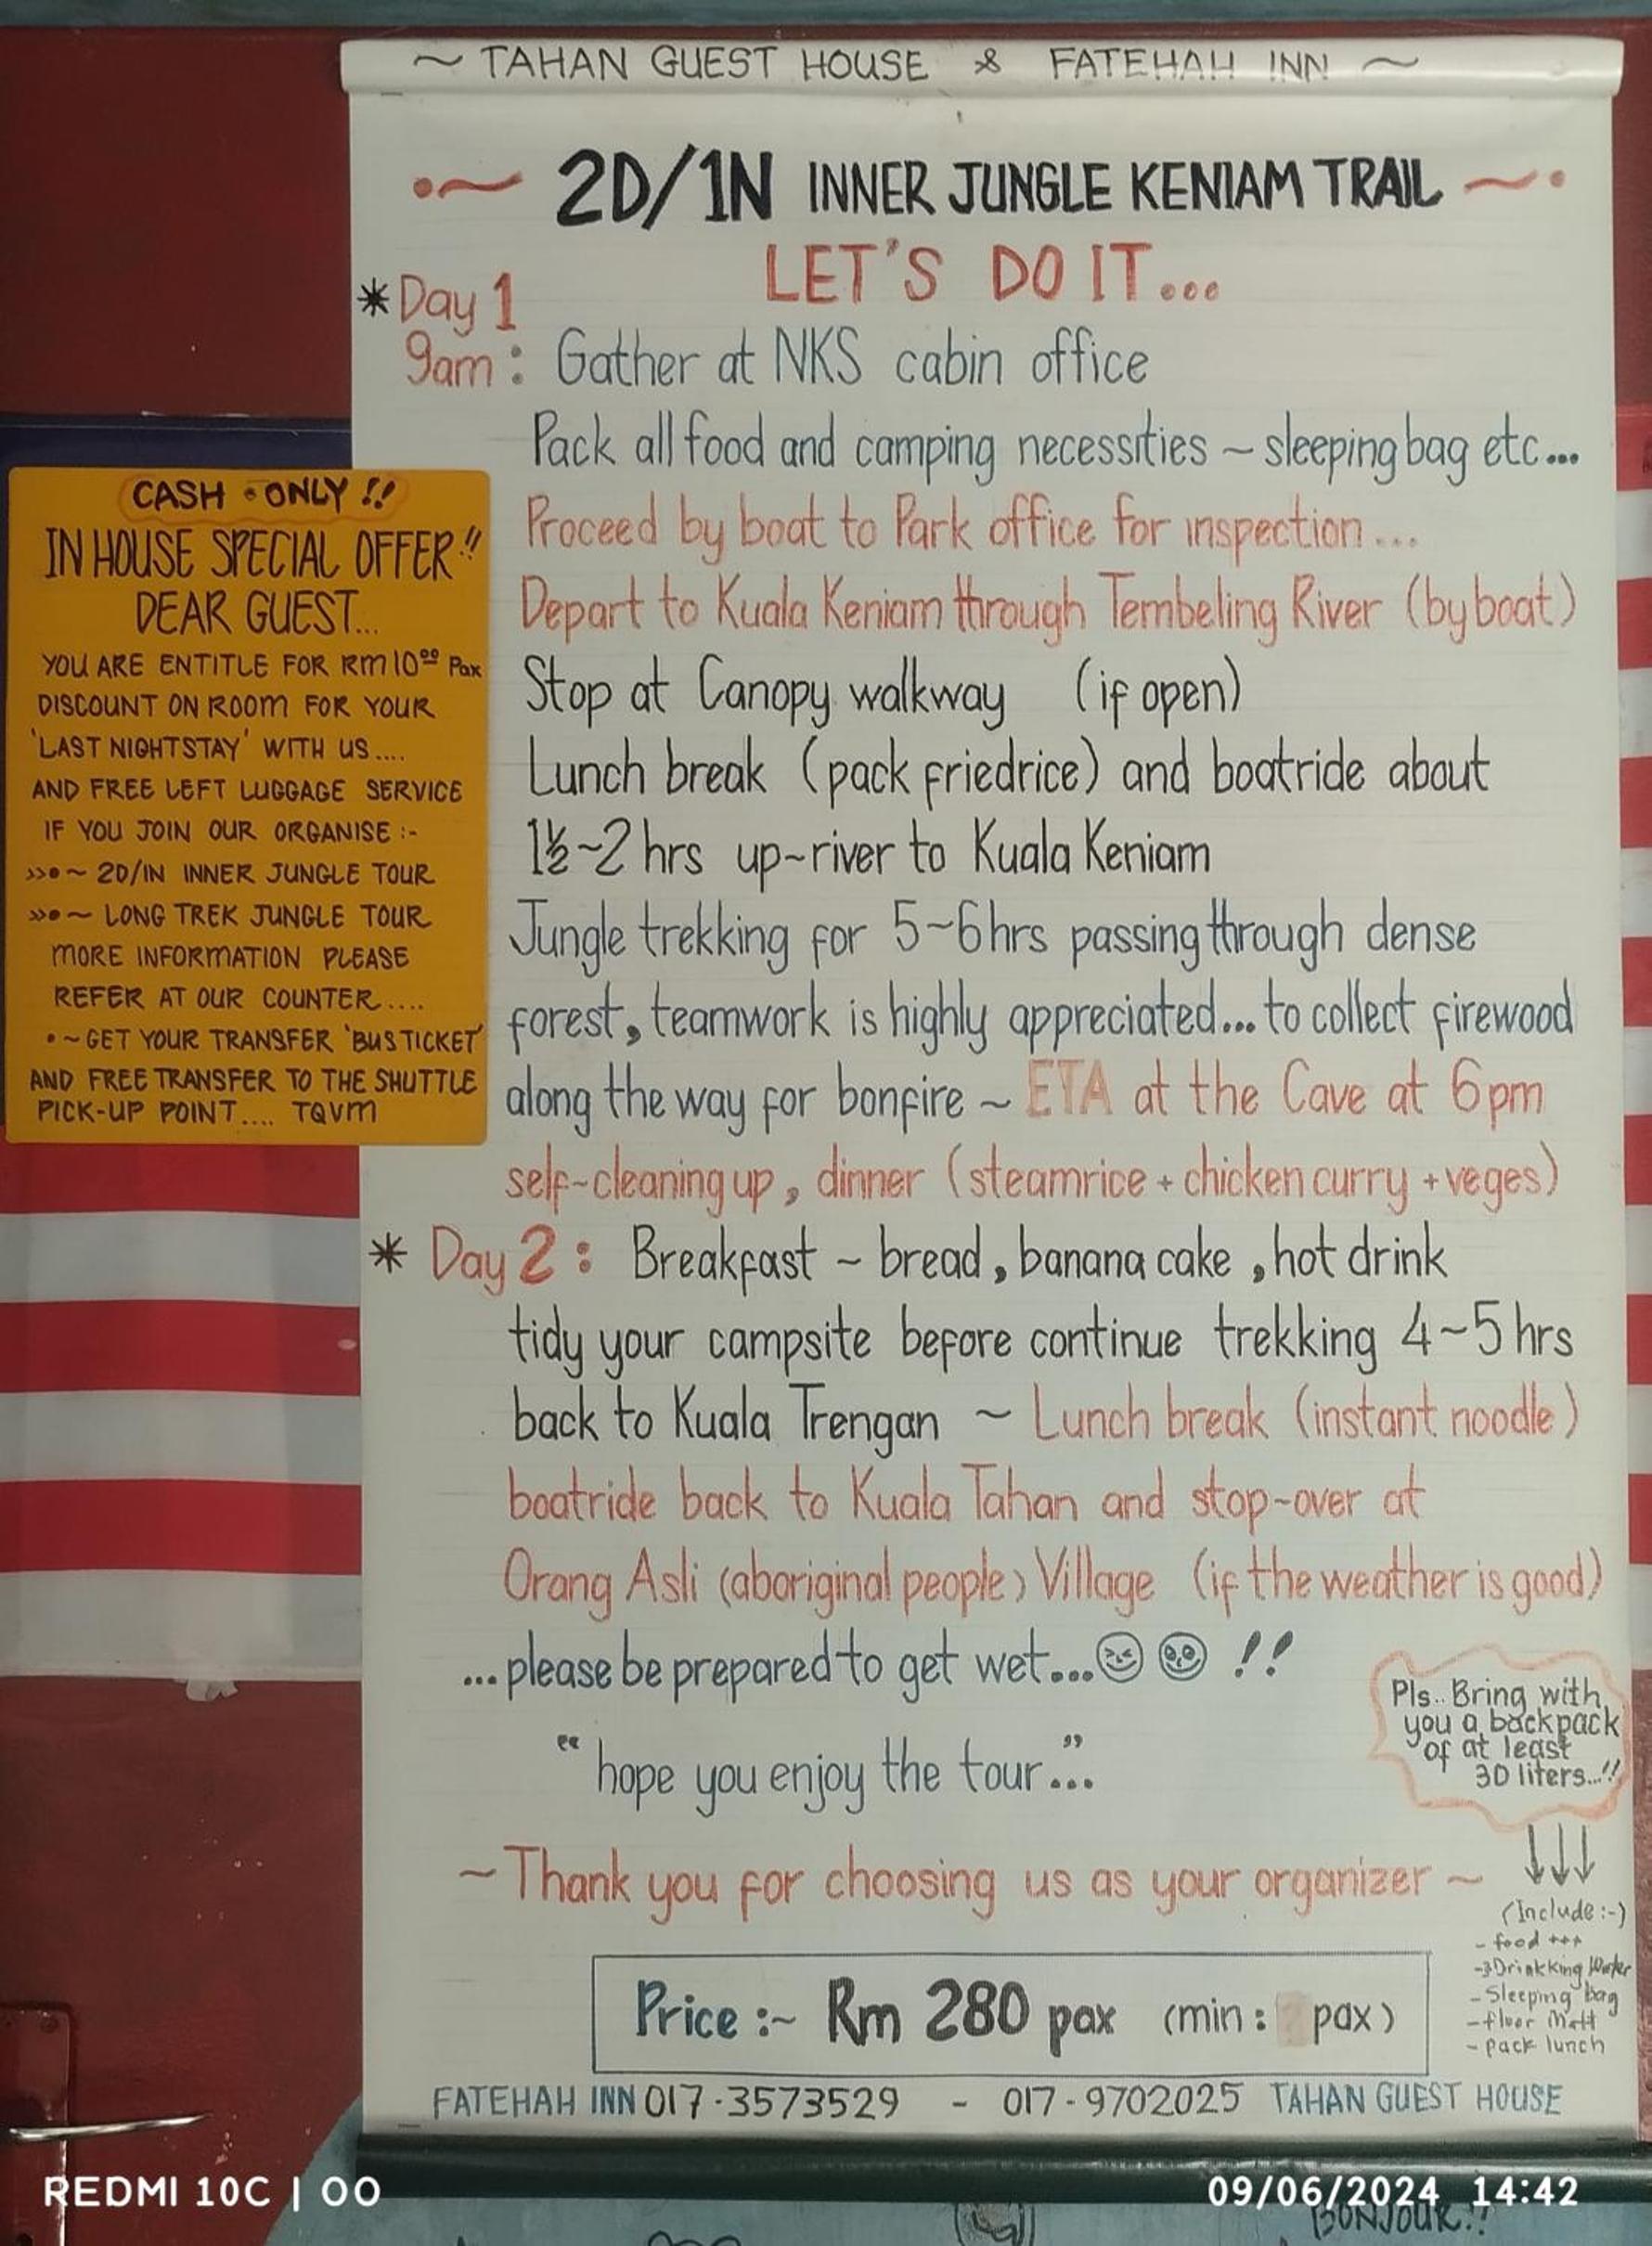 ~ TAHAN GUEST HOUSE & FATEHAH INN ~
2D/1N INNER JUNGLE KENIAM TRAIL
LET'S DO IT...
* Day 1
9am : Gather at NKS cabin office
Pack all food and camping necessities ~ sleeping bag etc...
Proceed by boat to Park office for inspection...
Depart to Kuala Keniam through Tembeling River (by boat)
Stop at Canopy walkway (if open)
Lunch break (pack friedrice) and boatride about
1½~2 hrs up~river to Kuala Keniam
Jungle trekking for 5~6hrs passing through dense
forest, teamwork is highly appreciated... to collect firewood
along the way for bonfire ~ ETA at the Cave at 6pm
self~cleaning up, dinner (steamrice + chicken curry + veges)
* Day 2 : Breakfast ~ bread, banana cake, hot drink
tidy your campsite before continue trekking 4~5 hrs
back to Kuala Trengan ~ Lunch break (instant noodle)
boatride back to Kuala Tahan and stop~over at
Orang Asli (aboriginal people) Village (if the weather is good)
...please be prepared to get wet... !!
"hope you enjoy the tour..."
~ Thank you for choosing us as your organizer ~
Price :~ Rm 280 pax (min : pax)
FATEHAH INN 017-3573529 - 017-9702025 TAHAN GUEST HOUSE
CASH • ONLY !!
IN HOUSE SPECIAL OFFER !!
DEAR GUEST...
YOU ARE ENTITLE FOR RM10⁰⁰ Pax
DISCOUNT ON ROOM FOR YOUR
'LAST NIGHTSTAY' WITH US....
AND FREE LEFT LUGGAGE SERVICE
IF YOU JOIN OUR ORGANISE :-
>>•~ 2D/1N INNER JUNGLE TOUR
>>•~ LONG TREK JUNGLE TOUR
MORE INFORMATION PLEASE
REFER AT OUR COUNTER....
•~GET YOUR TRANSFER 'BUS TICKET'
AND FREE TRANSFER TO THE SHUTTLE
PICK-UP POINT.... TQVM
Pls.. Bring with
you a backpack
of at least
30 liters...!!
(Include :-)
- food +++
-3Drinkking Water
- Sleeping bag
- floor Matt
- pack lunch
REDMI 10C | OO
09/06/2024 14:42
BONJOUR !!